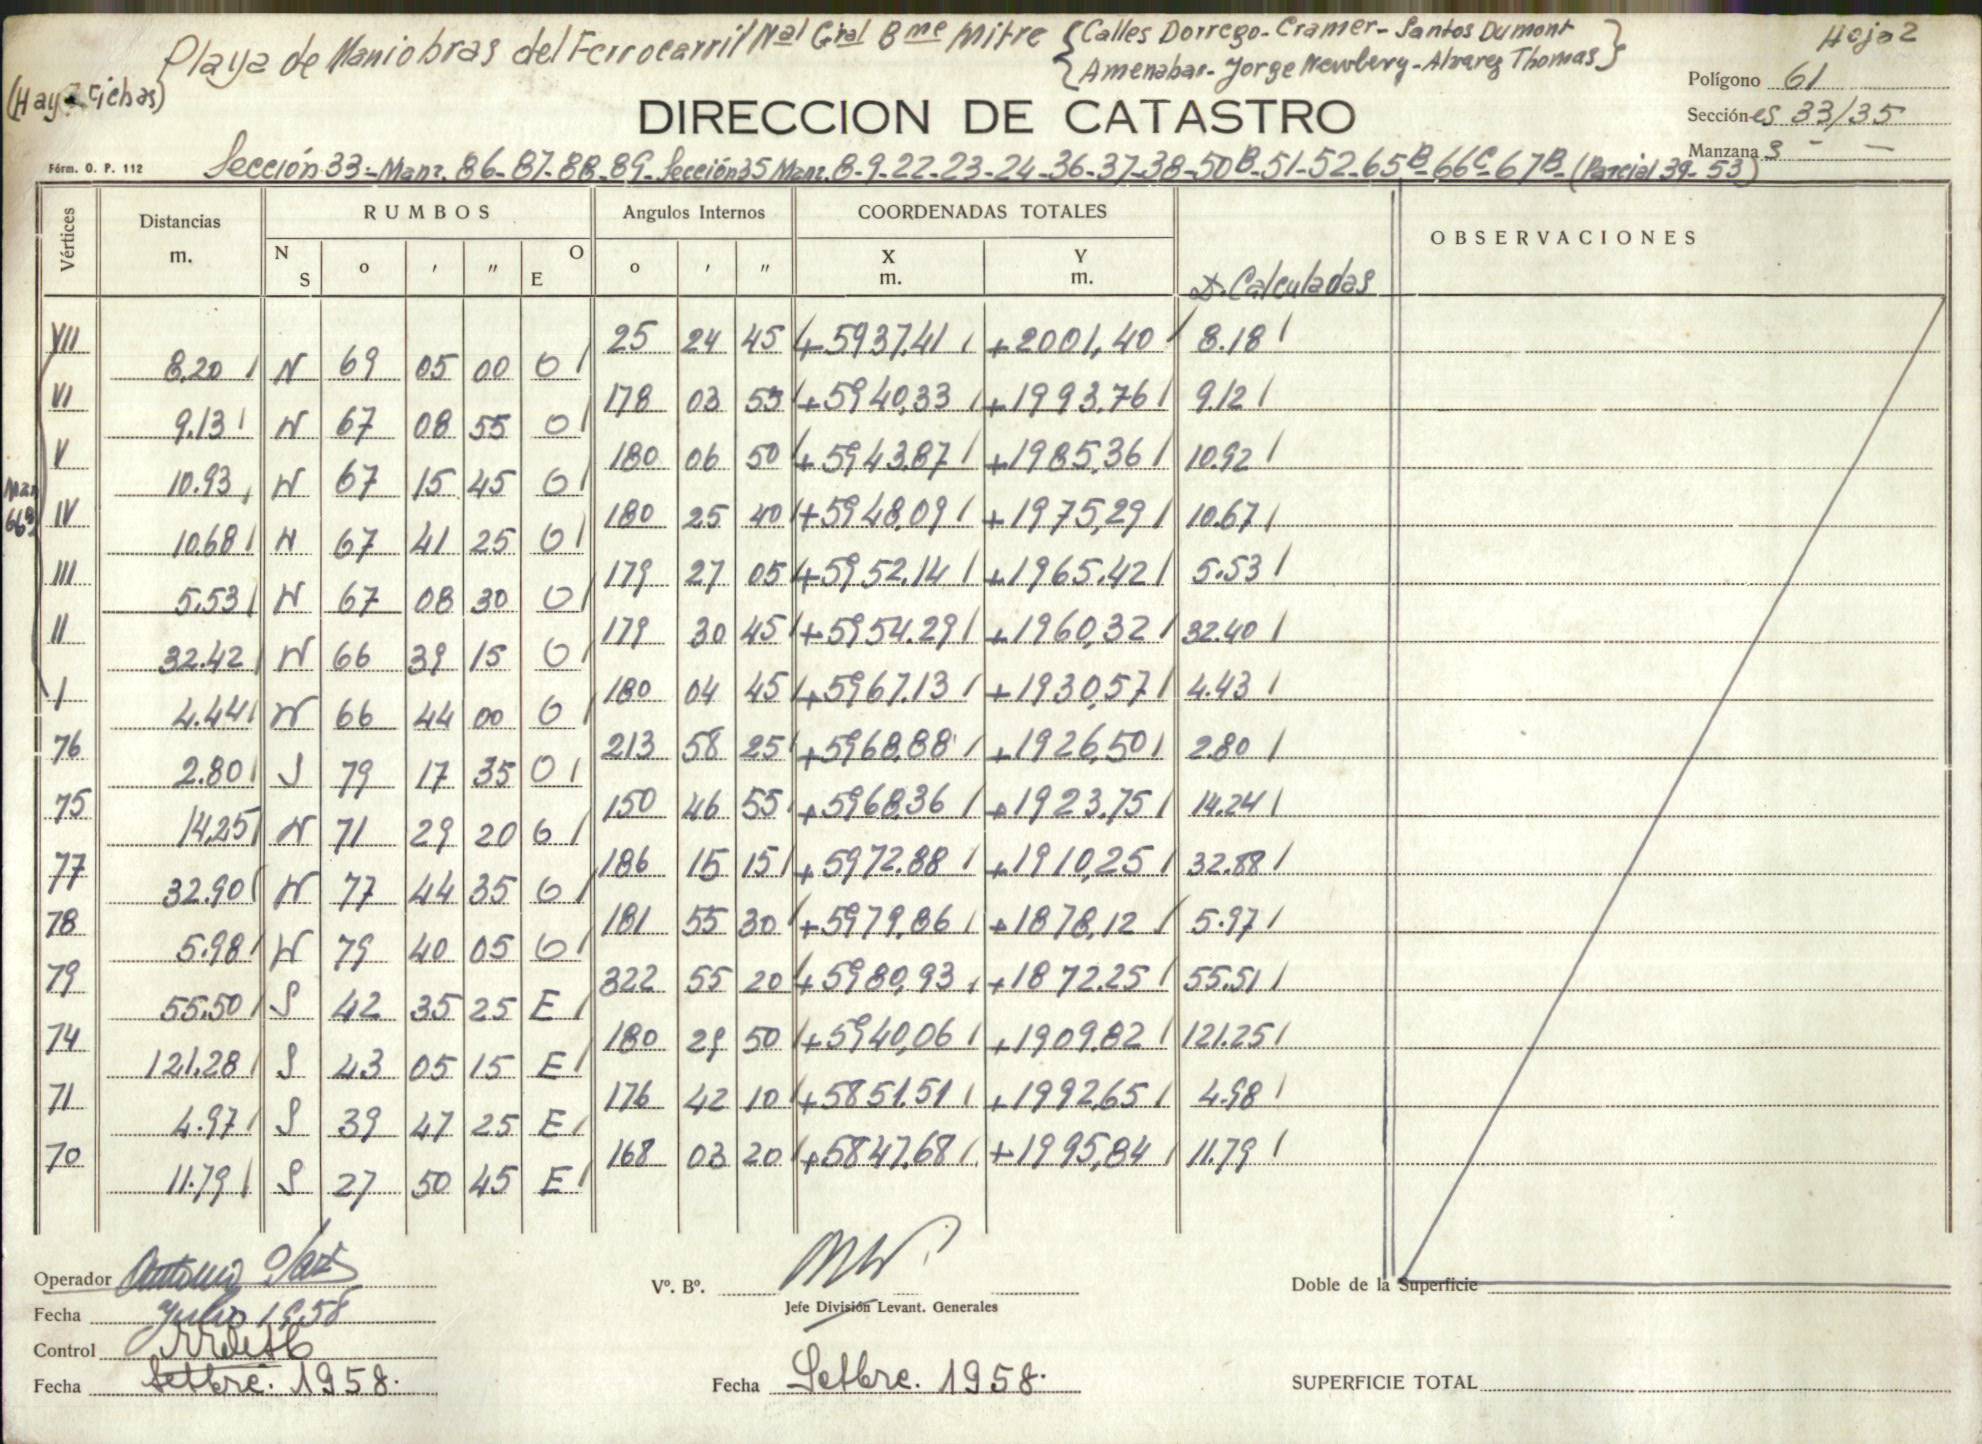 Hoja 2
Playa de Maniobras del Ferrocarril Nal Gral Bme Mitre {Calles Dorrego-Cramer-Santos Dumont
Amenabar-Jorge Newbery-Alvarez Thomas}
(Hay 2 Fichas)
Polígono 61
DIRECCION DE CATASTRO
Sección-es 33/35
Manzana s - -
Fórm. O. P. 112
Sección 33-Manz. 86-87-88-89-Sección 35 Manz. 8-9-22-23-24-36-37-38-50B-51-52-65B-66C-67B-(Parcial 39-53)
Vértices Distancias m. RUMBOS N S o ' " O E Angulos Internos o ' " COORDENADAS TOTALES X m. Y m. D. Calculadas OBSERVACIONES
VII 25 24 45 +5937,41 +2001,40 8.18
8,20 N 69 05 00 O
VI 178 03 55 +5940,33 +1993,76 9.12
9.13 N 67 08 55 O
V 180 06 50 +5943.87 +1985,36 10.92
10.93 N 67 15 45 O
Man 66B
IV 180 25 40 +5948,09 +1975,29 10.67
10.68 N 67 41 25 O
III 179 27 05 +5952.14 +1965.42 5.53
5.53 N 67 08 30 O
II 179 30 45 +5954.29 +1960,32 32.40
32.42 N 66 39 15 O
I 180 04 45 +5967.13 +1930,57 4.43
4.44 N 66 44 00 O
76 213 58 25 +5968,88 +1926,50 2.80
2.80 S 79 17 35 O
75 150 46 55 +5968,36 +1923.75 14.24
14,25 N 71 29 20 O
77 186 15 15 +5972.88 +1910,25 32.88
32.90 N 77 44 35 O
78 181 55 30 +5979,86 +1878,12 5.97
5.98 N 79 40 05 O
79 322 55 20 +5980,93 +1872.25 55.51
55.50 S 42 35 25 E
74 180 29 50 +5940,06 +1909.82 121.25
121.28 S 43 05 15 E
71 176 42 10 +5851.51 +1992,65 4.98
4.97 S 39 47 25 E
70 168 03 20 +5847,68 +1995,84 11.79
11.79 S 27 50 45 E
Operador Antonio
Vº. Bº.
Doble de la Superficie
Jefe División Levant. Generales
Fecha Julio 1958
Control
Fecha Setbre. 1958.
Fecha Setbre. 1958.
SUPERFICIE TOTAL